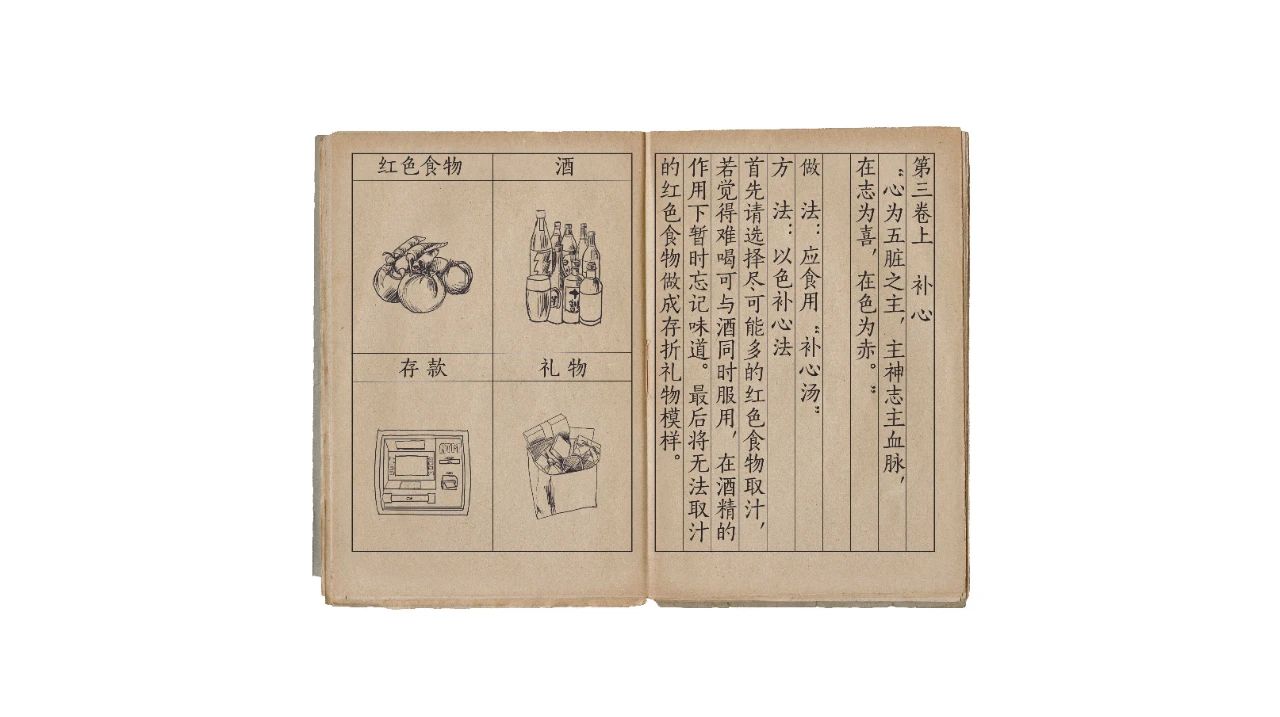 第三卷上 补心
“心为五脏之主，主神志主血脉，
在志为喜，在色为赤。”
做 法：应食用“补心汤”
方 法：以色补心法
首先请选择尽可能多的红色食物取汁，
若觉得难喝可与酒同时服用，在酒精的
作用下暂时忘记味道。最后将无法取汁
的红色食物做成存折礼物模样。
红色食物
酒
存款
礼物